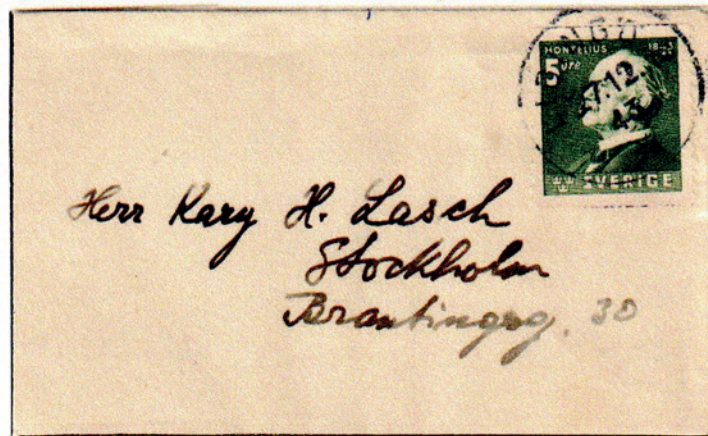 MONTELIUS 1843
5 öre
7.12
43
SVERIGE
Herr Kary H. Lasch
Stockholm
Brantingsg. 30